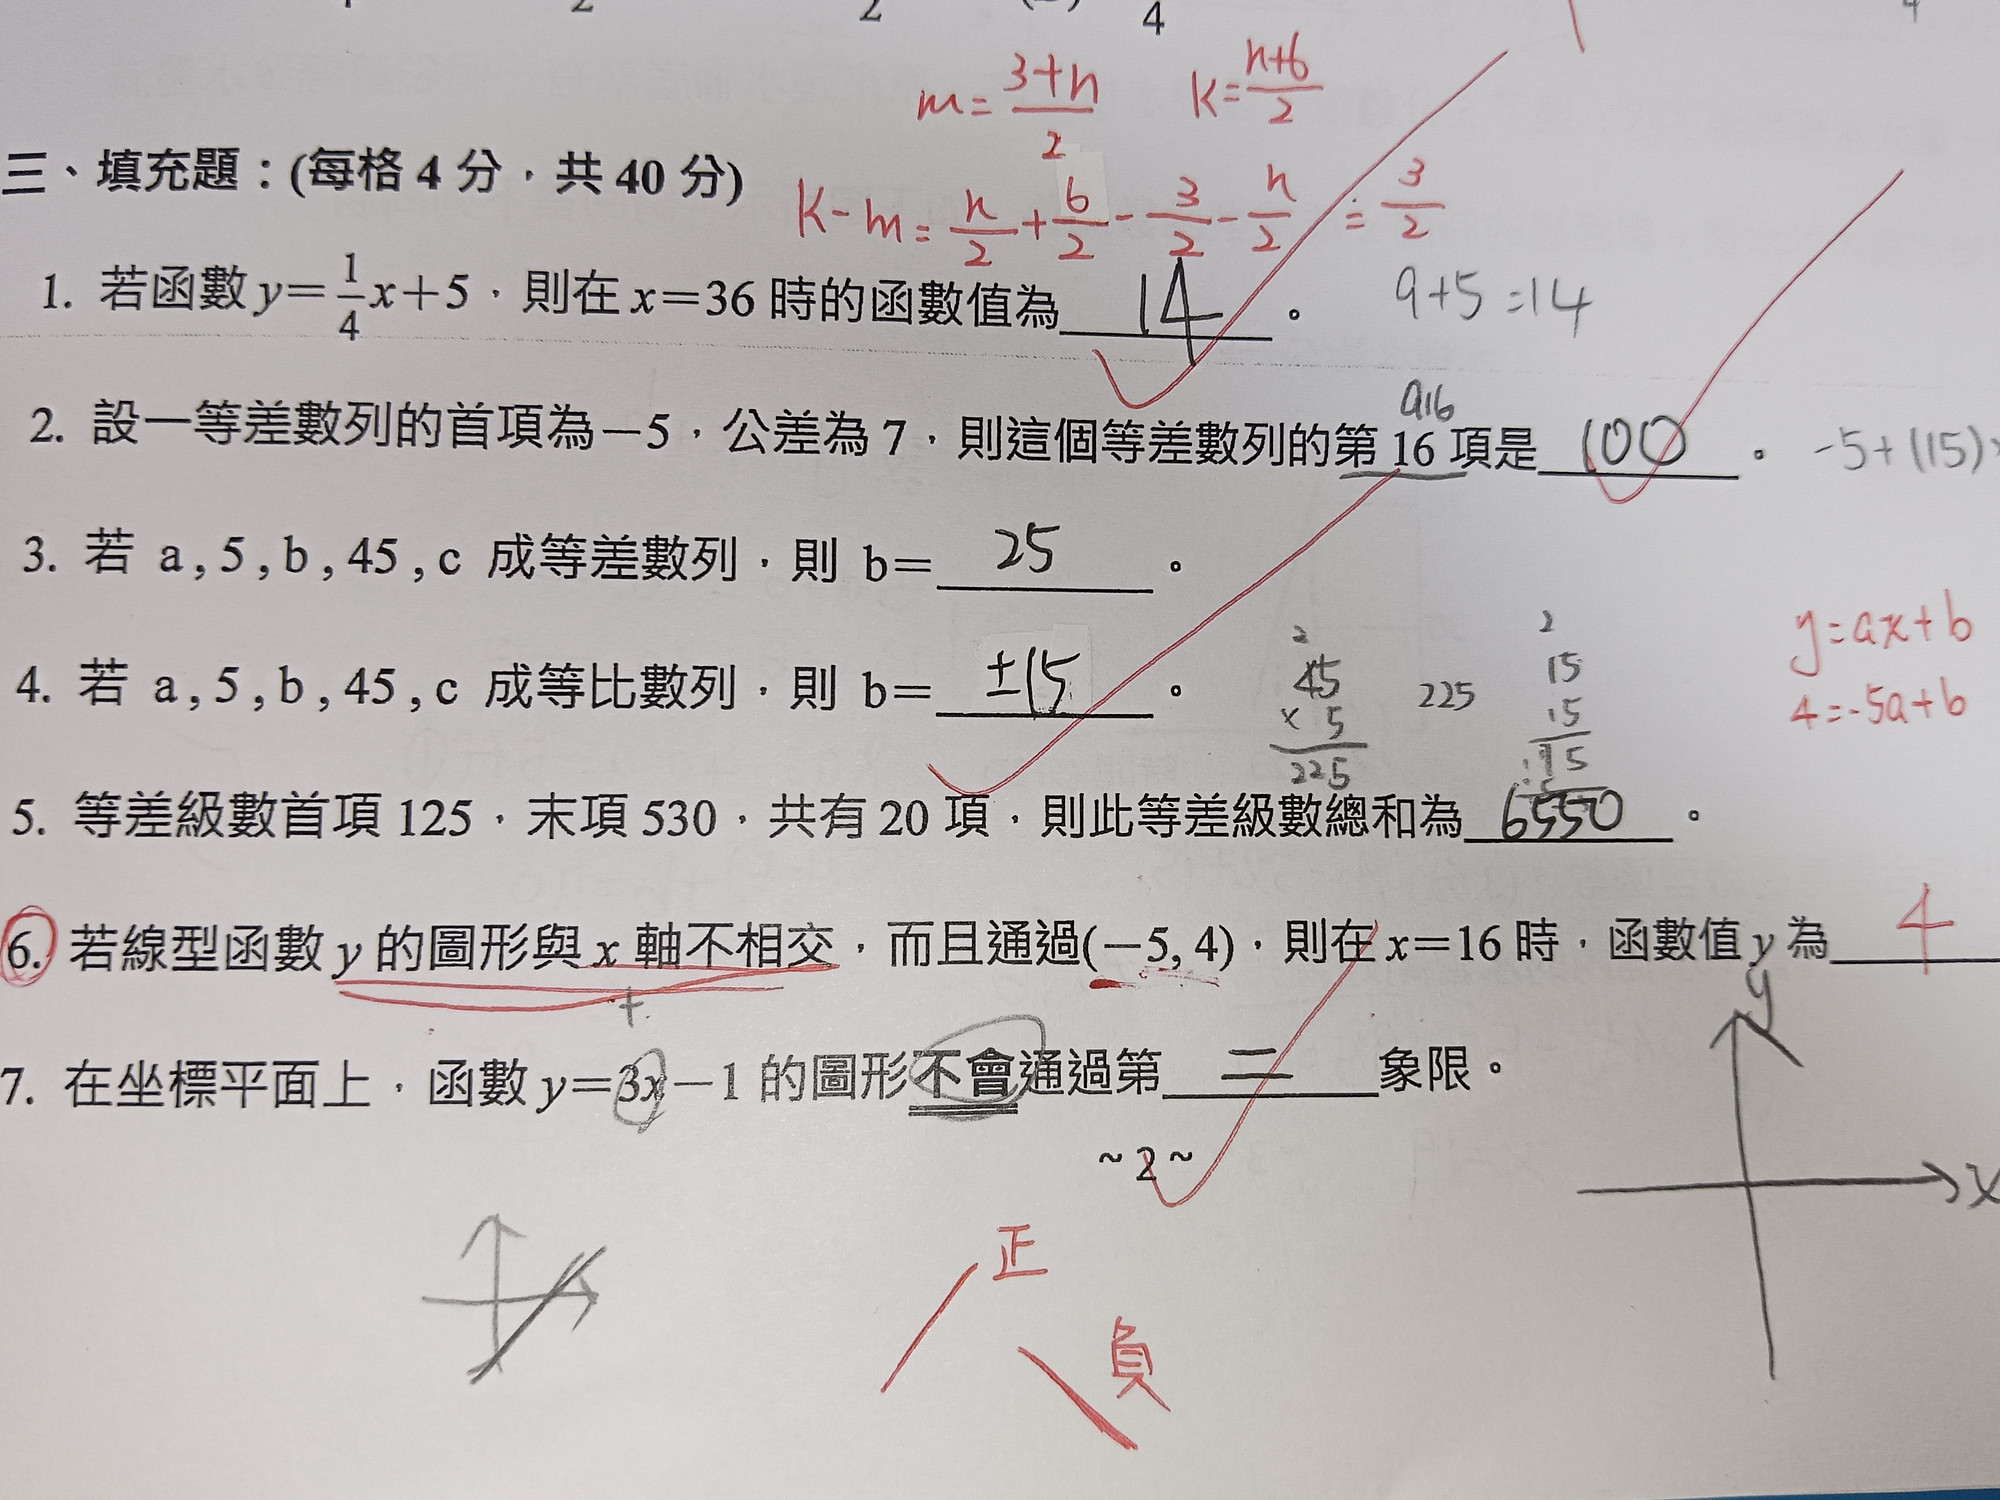 m=(3+n)/2  k=(n+6)/2
三、填充題：(每格4分，共40分)
k-m=n/2+6/2-3/2-n/2=3/2
1. 若函數y=1/4x+5，則在x=36時的函數值為 14 。 9+5=14
a16
2. 設一等差數列的首項為－5，公差為7，則這個等差數列的第16項是 100 。 -5+(15)
3. 若 a , 5 , b , 45 , c 成等差數列，則 b= 25 。
y=ax+b
4. 若 a , 5 , b , 45 , c 成等比數列，則 b= ±15 。
4=-5a+b
2
45
x 5
225
225
2
15
15
5. 等差級數首項125，末項530，共有20項，則此等差級數總和為 6550 。
6. 若線型函數y的圖形與x軸不相交，而且通過(－5, 4)，則在x=16時，函數值y為 4
+
7. 在坐標平面上，函數y=3x－1的圖形不會通過第 二 象限。
y
x
~2~
正
負